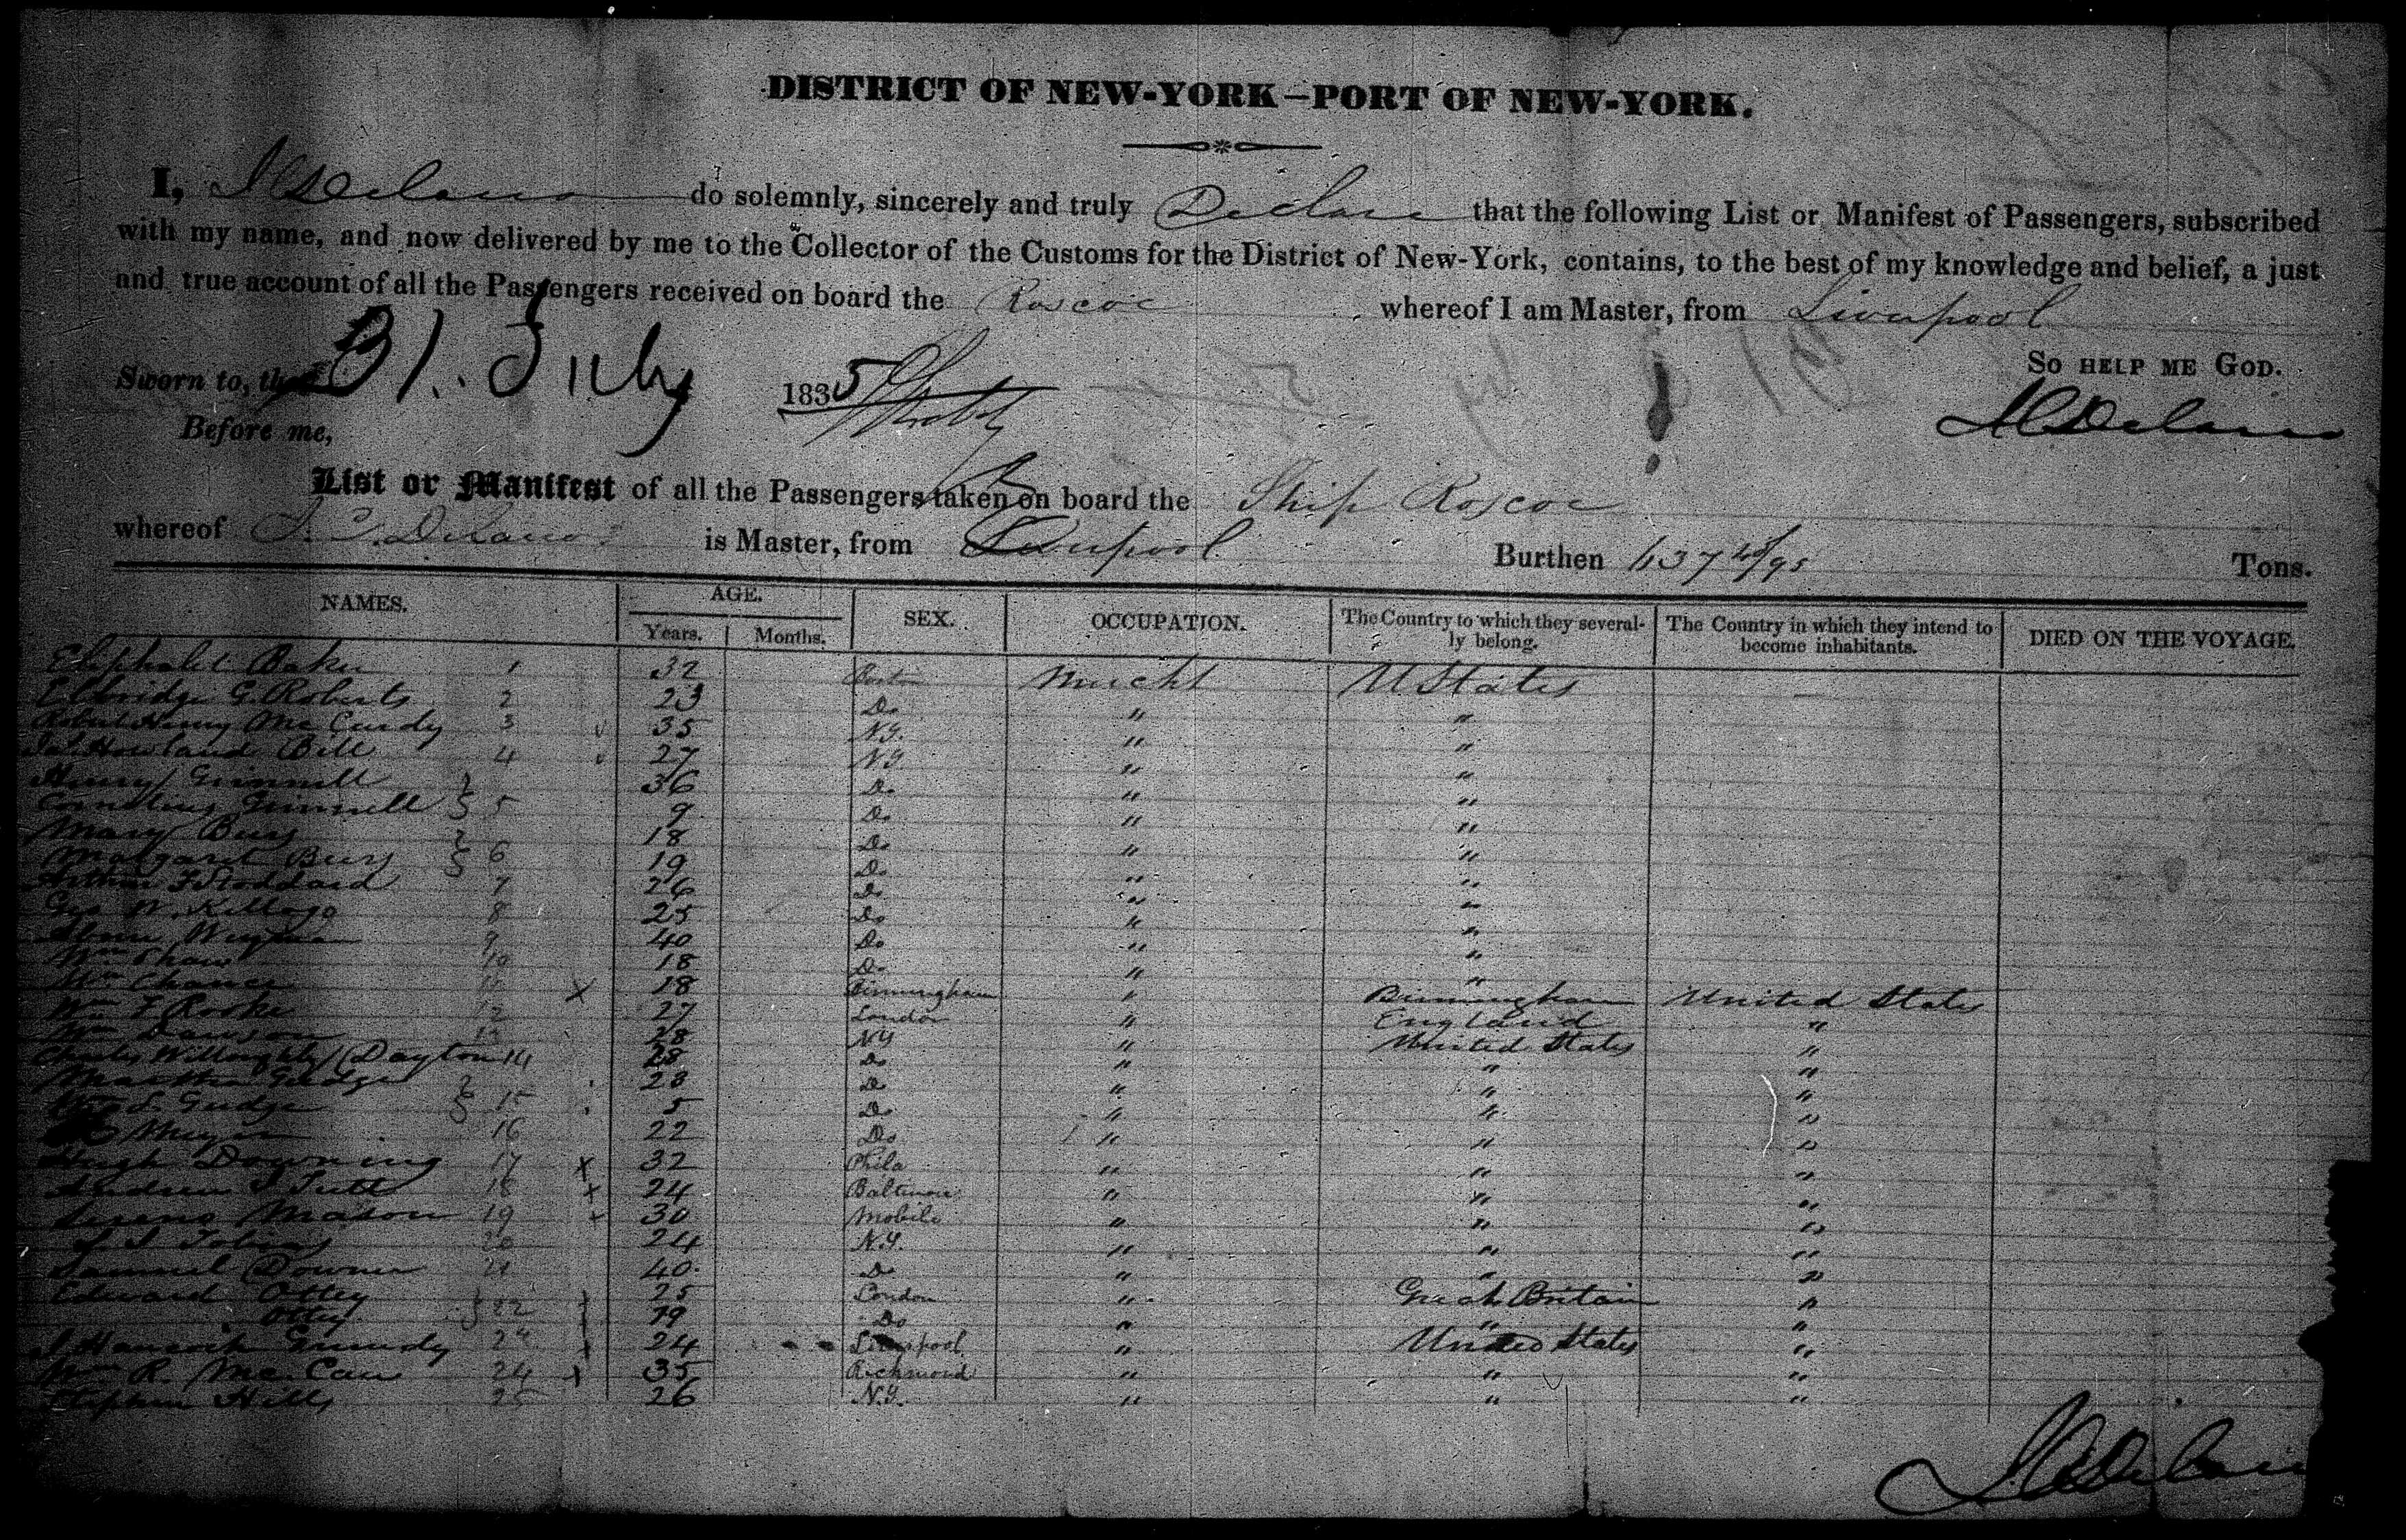 DISTRICT OF NEW-YORK—PORT OF NEW-YORK.
I, J C Delano do solemnly, sincerely and truly Declare that the following List or Manifest of Passengers, subscribed
with my name, and now delivered by me to the Collector of the Customs for the District of New-York, contains, to the best of my knowledge and belief, a just
and true account of all the Passengers received on board the Roscoe whereof I am Master, from Liverpool
So HELP ME GOD.
Sworn to, the 31. July 1835
J C Delano
Before me,
List or Manifest of all the Passengers taken on board the Ship Roscoe
whereof J. C. Delano is Master, from Liverpool Burthen 637 45/95 Tons.
NAMES. AGE. Years. Months. SEX. OCCUPATION. The Country to which they severally belong. The Country in which they intend to become inhabitants. DIED ON THE VOYAGE.
Eliphalet Baker 1 32 Boston Mercht U States
Elbridge G. Roberts 2 23 Do " "
Robert Henry Mc Curdy 3 35 N.Y. " "
Jas Howland Bill 4 27 N.Y " "
Henry Grinnell 36 Do " "
Cornelius Grinnell 5 9 Do " "
Mary Buss 18 Do " "
Margaret Buss 6 19 Do " "
Arthur F Stoddard 7 26 Do " "
Geo W. Kellogg 8 25 Do " "
9 40 Do " "
Wm Shaw 10 18 Do " "
Wm Chance 11 x 18 Birmingham " Birmingham United States
Wm F Rooke 12 27 London " England "
Wm Dawson 13 28 NY " United States "
Charles Willoughby Dayton 14 28 Do " " "
Martha Gedge 28 Do " " "
Wm S. Gedge 15 5 Do " " "
Meyer 16 22 Do " " "
Hugh Downing 17 x 32 Phila " " "
Andrew S Tutt 18 x 24 Baltimore " " "
Sereno Mason 19 x 30 Mobile " " "
S. I. Tobias 20 24 N.Y. " " "
Samuel Downer 21 40 Do " " "
Edward Ottey 25 London " Great Britain "
" Ottey 22 19 Do " " "
J Hancock Grundy 24 Liverpool " United States "
Wm R. Mc.Caw 24 x 35 Richmond " " "
Stephen Hills 25 26 N.Y. " " "
J C Delano